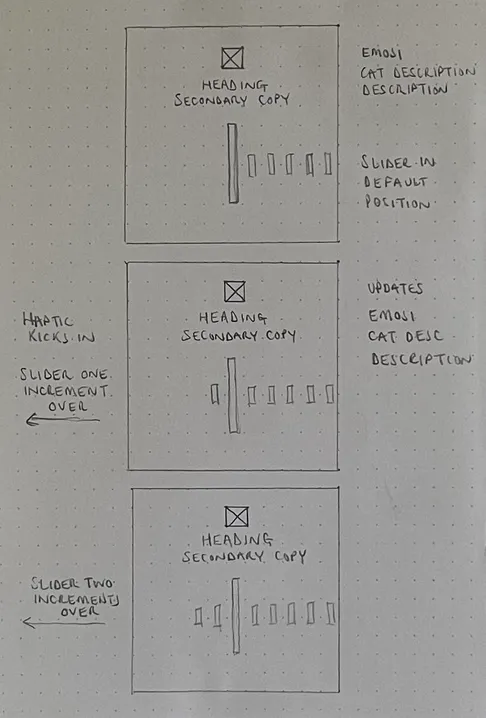 HEADING
SECONDARY COPY
EMOJI
CAT DESCRIPTION
DESCRIPTION
SLIDER IN
DEFAULT
POSITION
HAPTIC
KICKS IN
SLIDER ONE
INCREMENT
OVER
HEADING
SECONDARY COPY
UPDATES
EMOJI
CAT DESC
DESCRIPTION
SLIDER TWO
INCREMENTS
OVER
HEADING
SECONDARY COPY